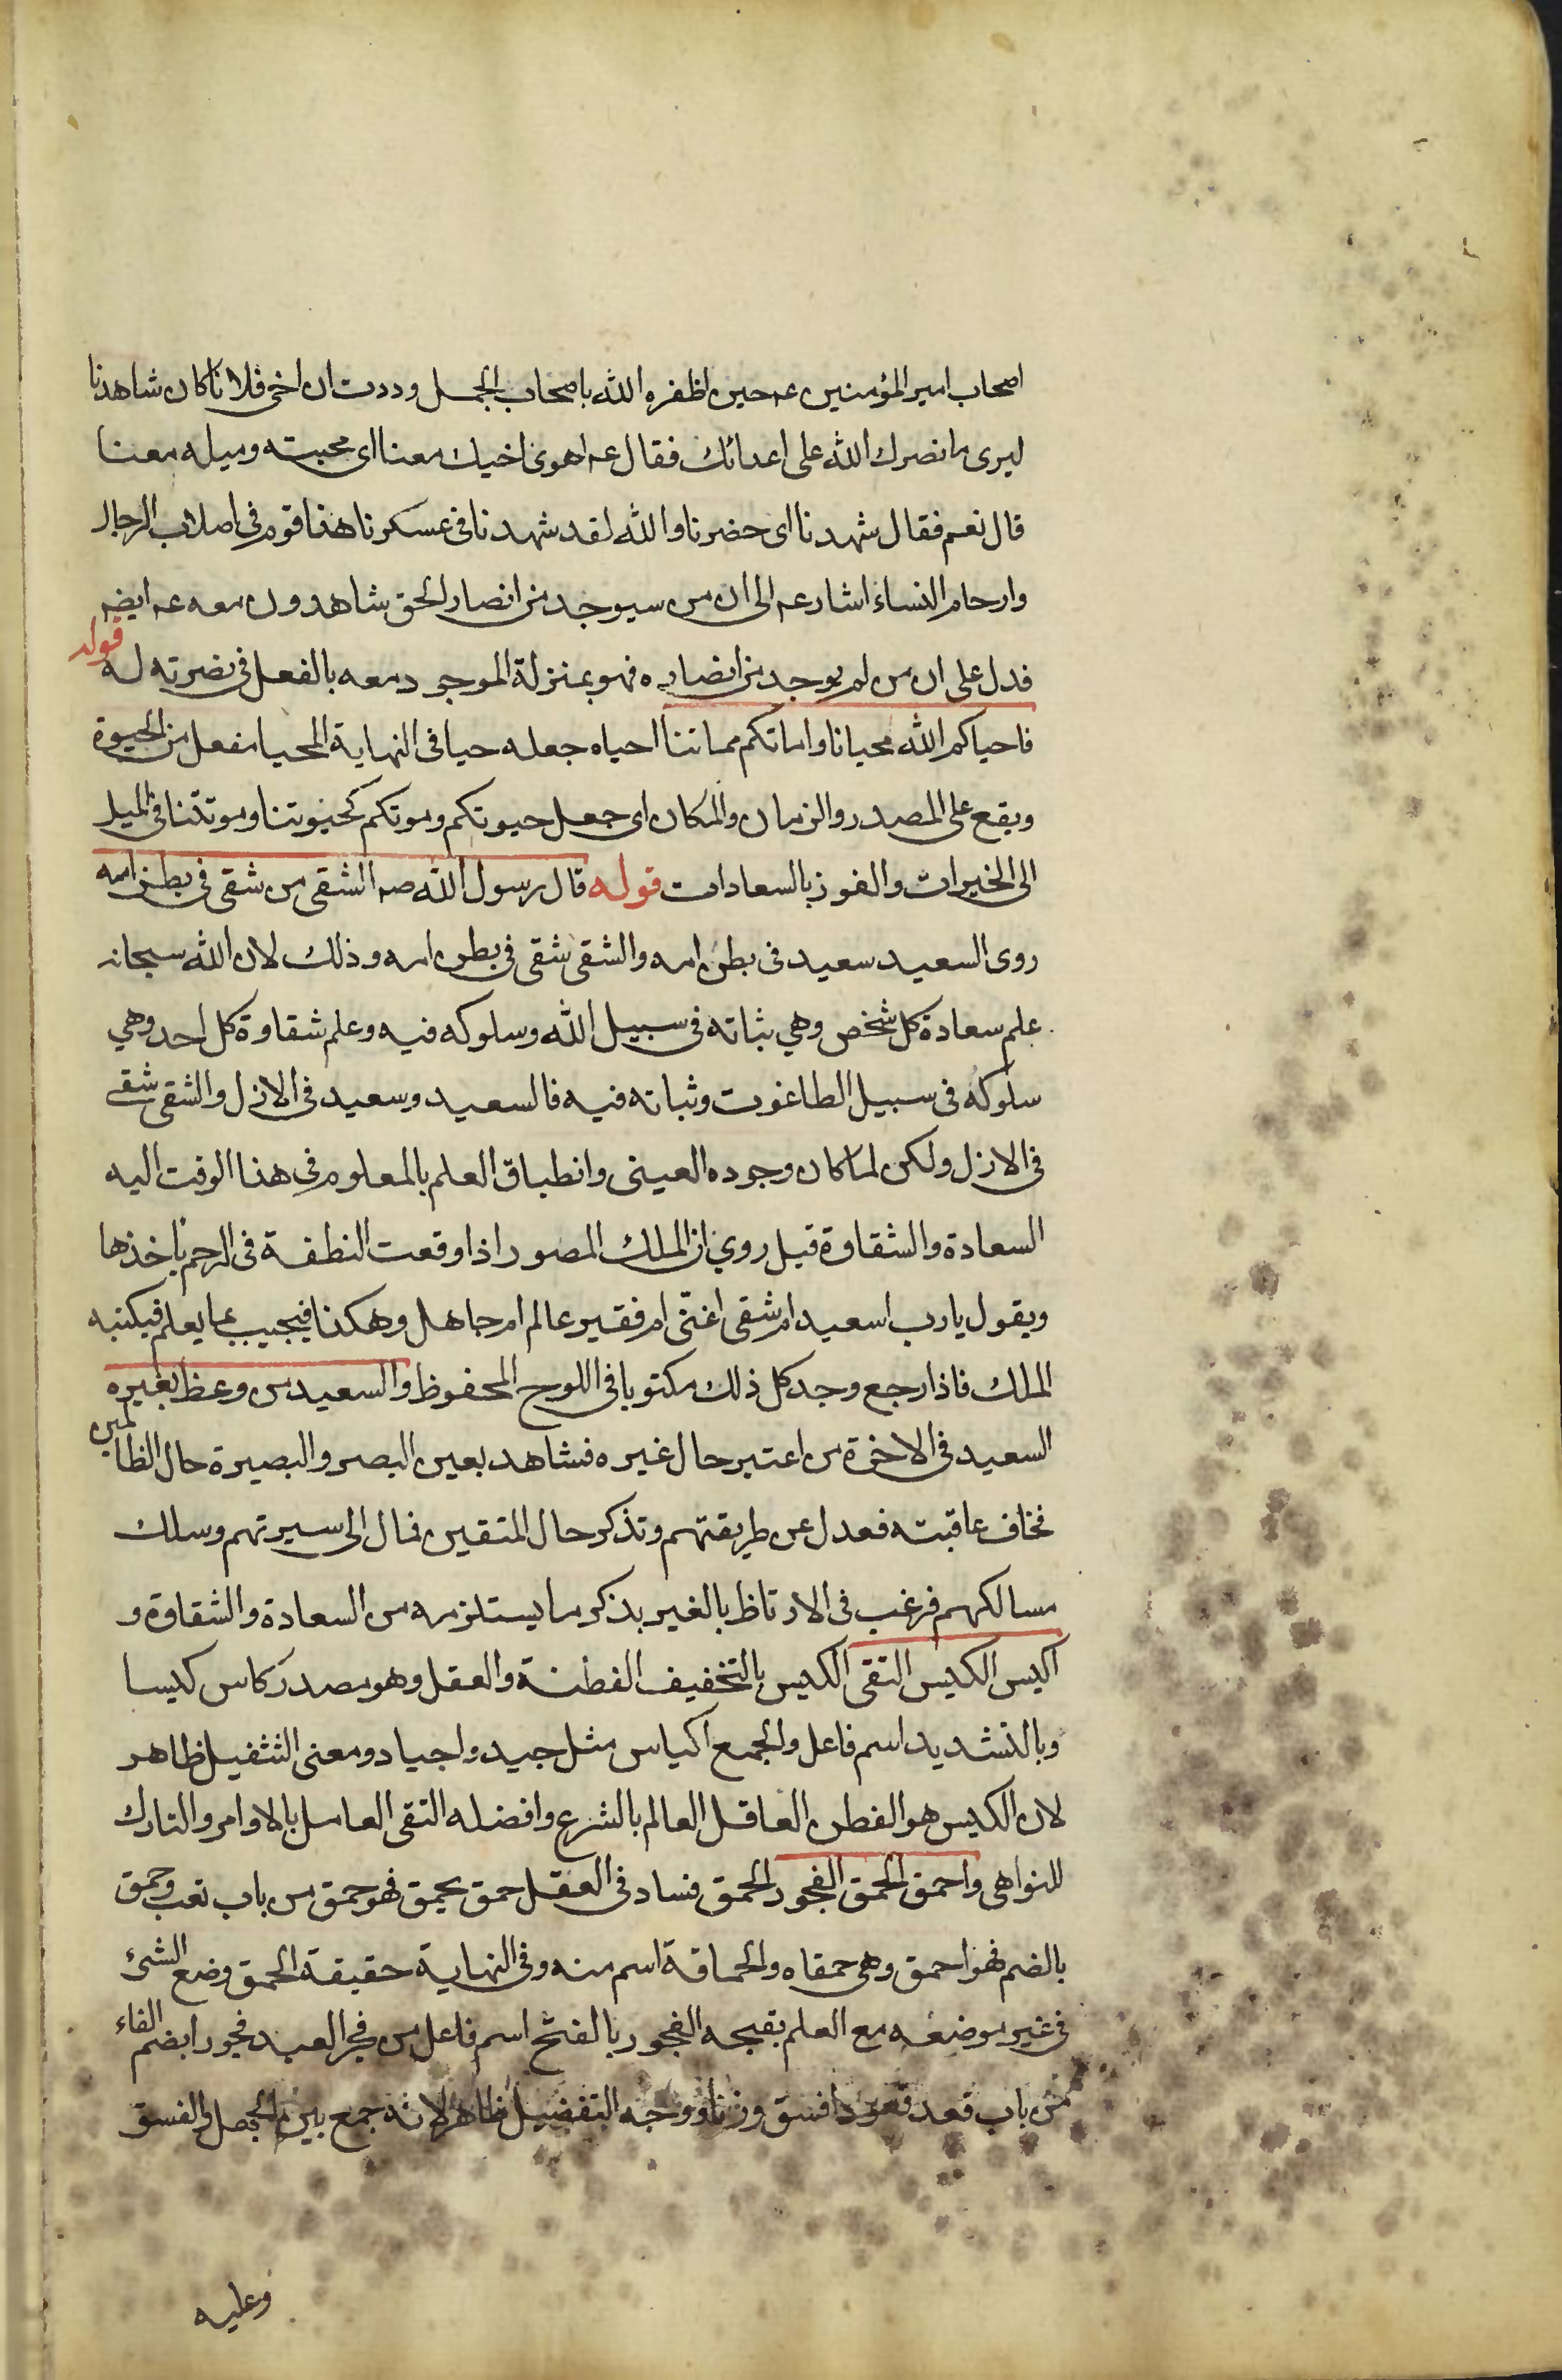 اصحاب امير المؤمنين عه حين اظفره الله باصحاب الجمل وددت ان اخى فلانا كان شاهدنا
ليرى ما نصرك الله على اعدائك فقال عه اهوى اخيك معنا اى محبته وميله معنا
قال نعم فقال شهدنا اى حضرنا والله لقد شهدنا فى عسكرنا هذا قوم فى اصلاب الرجال
وارحام النساء اشار عه الى ان من سيوجد من انصار الحق شاهدون معه عه ايضه
فدل على ان من لم يوجد من انصاره فهو بمنزلة الموجود معه بالفعل فى نصرته له قوله
فاحياكم الله محيانا واماتكم مماتنا احياه جعله حيا فى النهاية المحيا مفعل من الحيوة
ويقع على المصدر والزمان والمكان اى جعل حيوتكم وموتكم كحيوتنا وموتتنا فى الميل
الى الخيرات والفوز بالسعادات قوله قال رسول الله صه الشقى من شقى فى بطن امه
روى السعيد سعيد فى بطن امه والشقى شقى فى بطن امه وذلك لان الله سبحانه
علم سعادة كل شخص وهي ثباته فى سبيل الله وسلوكه فيه وعلم شقاوة كل احد وهي
سلوكه فى سبيل الطاغوت وثباته فيه فالسعيد وسعيد فى الازل والشقى شقى
فى الازل ولكن لما كان وجوده العينى وانطباق العلم بالمعلوم فى هذا الوقت اليه
السعادة والشقاوة قيل روي ان الملك المصور اذا وقعت النطفة فى الرحم ياخذها
ويقول يا رب اسعيد ام شقى اغنّى ام فقير عالم ام جاهل وهكذا فيجيب بما يعلم فيكتبه
الملك فاذا رجع وجد كل ذلك مكتوبا فى اللوح المحفوظ والسعيد من وعظ بغيره
السعيد فى الاخرة من اعتبر حال غيره فشاهد بعين البصر والبصيرة حال الظالمين
فخاف عاقبته فعدل عن طريقتهم وتذكر حال المتقين فمال الى سيرتهم وسلك
مسالكهم فرغب فى الارتاظ بالغير بذكر ما يستلزمه من السعادة والشقاوة و
اكيس الكيس التقى الكيس بالتخفيف الفطنة والعقل وهو مصدر كاس كيسا
وبالتشديد اسم فاعل والجمع اكياس مثل جيد واجياد ومعنى التثفيل ظاهر
لان الكيس هو الفطن العاقل العالم بالشرع وافضله التقى العامل بالاوامر والتارك
للنواهى واحمق الحمق الفجور الحمق فساد فى العقل حمق يحمق فهو حمق من باب تعب وحمق
بالضم فهو احمق وهى حمقاه والحماقة اسم منه وفى النهاية حقيقة الحمق وضع الشئ
فى غير موضعه مع العلم بقبحه الفجور بالفتح اسم فاعل من فجر العبد فجورا بضم الفاء
من باب قعد قعودا فسق وزنا ووجه التفضيل ظاهر لانه جمع بين الجهل والفسق
وعليه